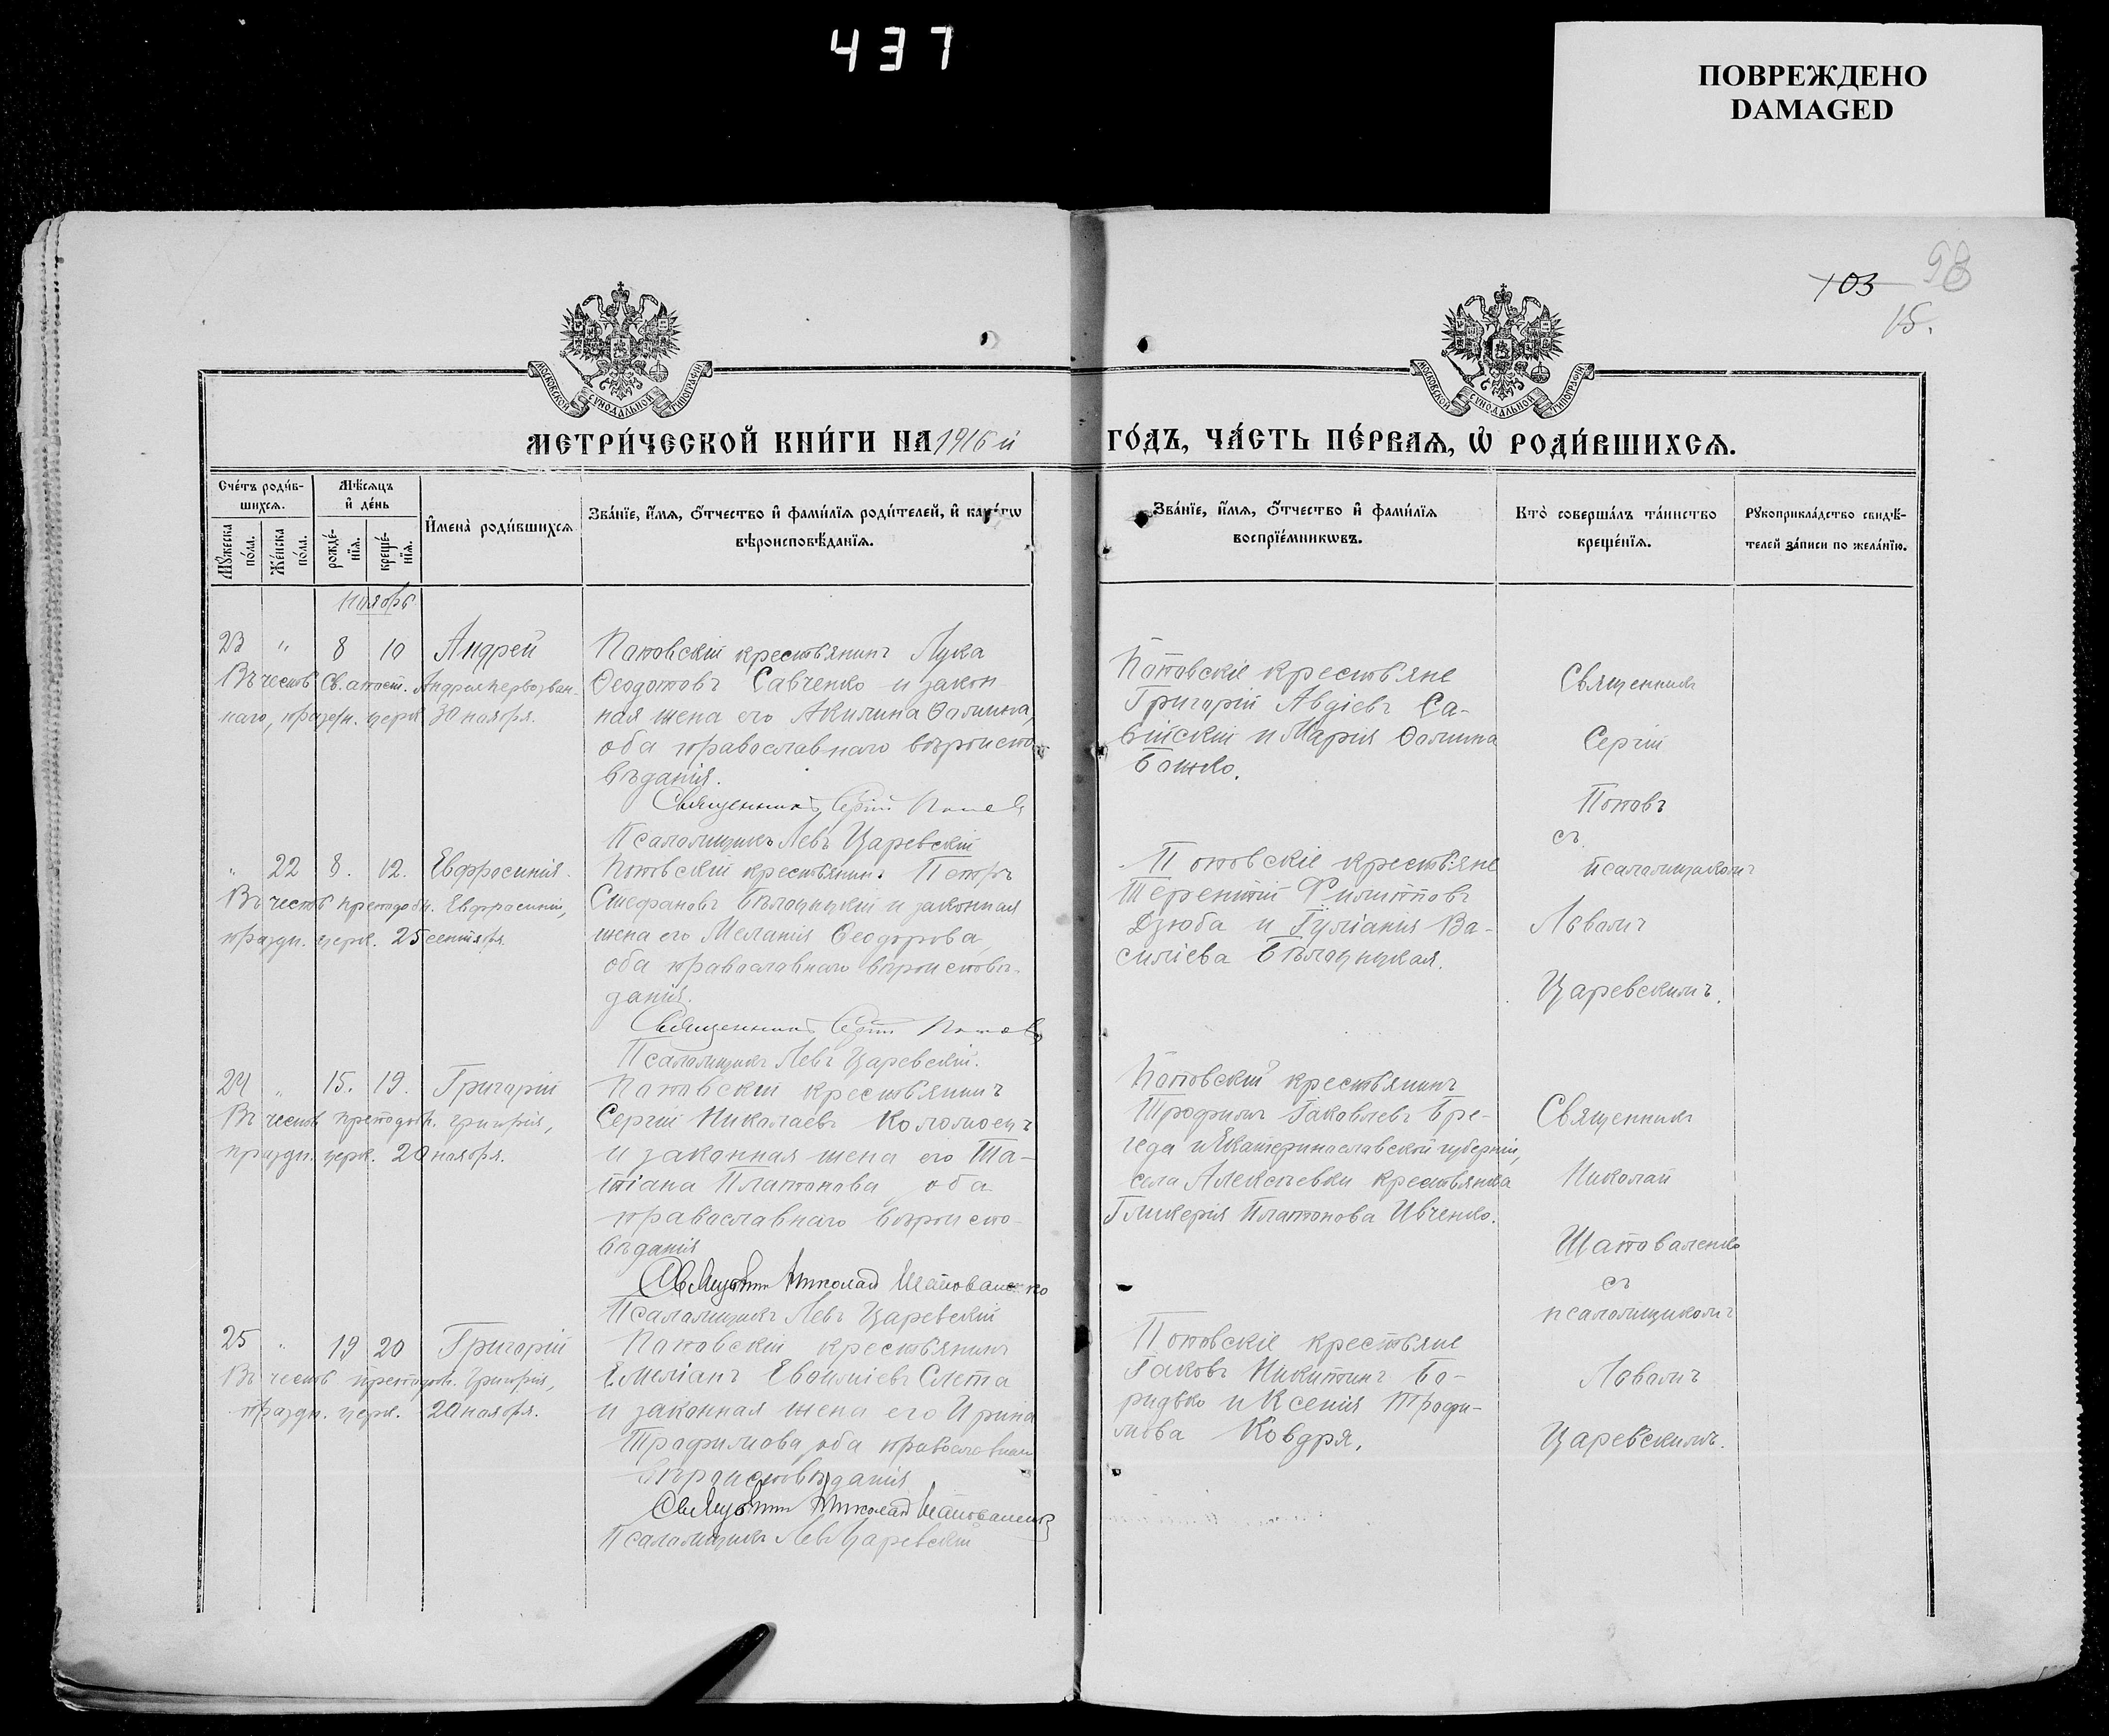 437
ПОВРЕЖДЕНО
DAMAGED
103 98
15.
МОСКОВСКОЙ СѴНОДАЛЬНОЙ ТИПОГРАФІИ
МОСКОВСКОЙ СѴНОДАЛЬНОЙ ТИПОГРАФІИ
МЕТРИ́ЧЕСКОЙ КНИ́ГИ НА 1916 й ГО́ДЪ, ЧА́СТЬ ПЕ́РВАѦ, Ѡ РОДИ́ВШИХСѦ.
Сче́тъ роди́в-
шихсѧ.
Мꙋжеска по́ла.
Же́нска по́ла.
Мѣ́сѧцъ
и҆ де́нь
рожде́нїѧ.
креще́нїѧ.
И҆мена̀ роди́вшихсѧ
Зва́нїе, и҆́мѧ, о҆́тчество и҆ фами́лїѧ роди́телей, и҆ како́гѡ
вѣроисповѣ́данїѧ.
Зва́нїе, и҆́мѧ, о҆́тчество и҆ фами́лїѧ
воспрїе́мникѡвъ.
Кто̀ соверша́лъ та́инство
креще́нїѧ.
Рꙋкоприкла́дство свидѣ́-
телей за́писи по жела́нїю.
Ноябрь
23 " 8 10 Андрей
Въ честь Св. апост. Андрея Первозван-
наго, праздн. церк. 30 ноября.
Поповскій крестьянинъ Лука
Ѳеодотовъ Савченко и закон-
ная жена его Акилина Ѳомина,
оба православнаго вѣроиспо-
вѣданія.
Священникъ Сергій Поповъ
Псаломщикъ Левъ Царевскій
Поповскіе крестьяне
Григорій Авдіевъ Са-
війскій и Марія Ѳомина
Божко.
Священникъ
Сергій
Поповъ
съ
псаломщикомъ
Львомъ
Царевскимъ.
" 22 8. 12. Евфросинія.
Въ честь преподобн. Евфросиніи,
праздн. церк. 25 сентября.
Поповскій крестьянинъ Петръ
Стефановъ Бѣлоцицкій и законная
жена его Меланія Ѳеодорова,
оба православнаго вѣроисповѣ-
данія.
Священникъ Сергій Поповъ
Псаломщикъ Левъ Царевскій.
Поповскіе крестьяне
Терентій Филипповъ
Дзюба и Іуліанія Ва-
силіева Бѣлоцицкая.
24 " 15. 19. Григорій
Въ честь преподобн. Григорія,
праздн. церк. 20 ноября.
Поповскій крестьянинъ
Сергій Николаевъ Коломоецъ
и законная жена его Та-
тіана Платонова оба
православнаго вѣроиспо-
вѣданія
Священникъ Николай Шаповаленко
Псаломщикъ Левъ Царевскій
Поповскій крестьянинъ
Трофимъ Іаковлевъ Бре-
геда и Екатеринославской губерніи,
села Алексѣевки крестьянка
Гликерія Платонова Ивченко.
Священникъ
Николай
Шаповаленко
съ
псаломщикомъ
Львомъ
Царевскимъ.
25 " 19 20 Григорій
Въ честь преподобн. Григорія,
праздн. церк. 20 ноября.
Поповскій крестьянинъ
Емеліанъ Евфиміевъ Слета
и законная жена его Ирина
Трофимова, оба православнаго
вѣроисповѣданія
Священникъ Николай Шаповаленко
Псаломщикъ Левъ Царевскій
Поповскіе крестьяне
Іаковъ Никитинъ Бо-
ридько и Ксенія Трофи-
мова Ковдря.